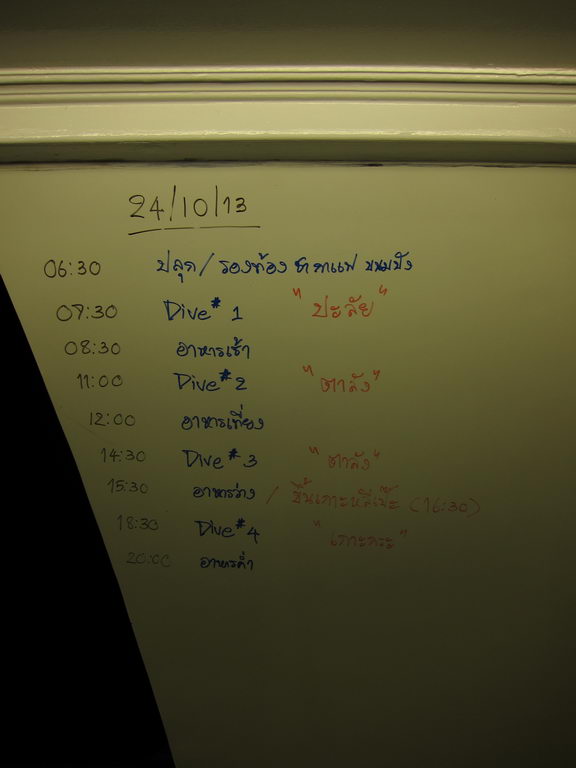 24/10/13
06:30 ปลุก / รองท้อง ชา กาแฟ ขนมปัง
07:30 Dive #1 "ปะลัย"
08:30 อาหารเช้า
11:00 Dive #2 "ตาลัง"
12:00 อาหารเที่ยง
14:30 Dive #3 "ตาลัง"
15:30 อาหารว่าง / ขึ้นเกาะหลีเป๊ะ (16:30)
18:30 Dive #4 "เกาะกระ"
20:00 อาหารค่ำ